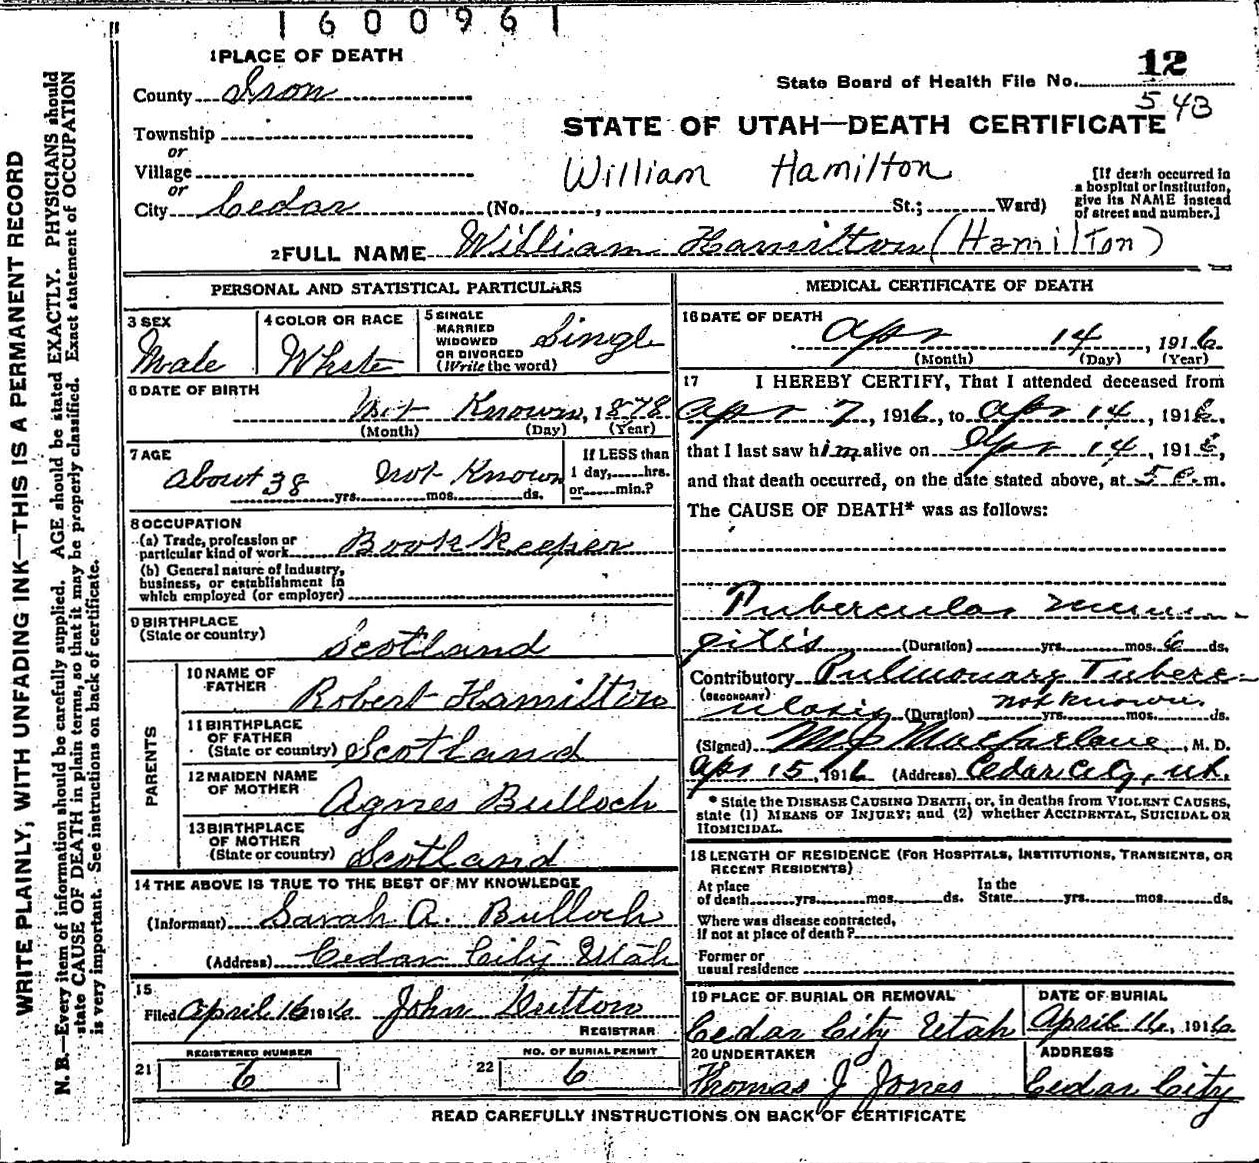 1600961
1 PLACE OF DEATH
12
State Board of Health File No.
543
County Iron
STATE OF UTAH—DEATH CERTIFICATE
Township
or
Village
or
William Hamilton
[If death occurred in
a hospital or institution,
give its NAME instead
of street and number.]
City Cedar (No. , St.; Ward)
2 FULL NAME William Hamilton (Hamilton)
PERSONAL AND STATISTICAL PARTICULARS
3 SEX
Male
4 COLOR OR RACE
White
5 SINGLE
MARRIED
WIDOWED
OR DIVORCED
(Write the word)
Single
6 DATE OF BIRTH
Not Known, 1878
(Month) (Day) (Year)
7 AGE
about 38 yrs. not Known mos. ds.
If LESS than
1 day, hrs.
or min.?
8 OCCUPATION
(a) Trade, profession or
particular kind of work Book Keeper
(b) General nature of Industry,
business, or establishment in
which employed (or employer)
9 BIRTHPLACE
(State or country)
Scotland
PARENTS
10 NAME OF
FATHER
Robert Hamilton
11 BIRTHPLACE
OF FATHER
(State or country) Scotland
12 MAIDEN NAME
OF MOTHER
Agnes Bulloch
13 BIRTHPLACE
OF MOTHER
(State or country) Scotland
14 THE ABOVE IS TRUE TO THE BEST OF MY KNOWLEDGE
(Informant) Sarah A. Bulloch
(Address) Cedar City Utah
15
Filed April 16 1916 John Dutton
REGISTRAR
REGISTERED NUMBER
21 6
NO. OF BURIAL PERMIT
22 6
MEDICAL CERTIFICATE OF DEATH
16 DATE OF DEATH
Apr 14, 1916
(Month) (Day) (Year)
17 I HEREBY CERTIFY, That I attended deceased from
Apr 7, 1916, to Apr 14, 1916,
that I last saw him alive on Apr 14, 1916,
and that death occurred, on the date stated above, at 5 m.
The CAUSE OF DEATH* was as follows:
Tubercular menin-
gitis (Duration) yrs. mos. 6 ds.
Contributory Pulmonary Tuberc-
(SECONDARY)
ulosis (Duration) not known yrs. mos. ds.
(Signed) M J Macfarlane, M. D.
Apr 15, 1916 (Address) Cedar City, Ut.
* State the DISEASE CAUSING DEATH, or, in deaths from VIOLENT CAUSES,
state (1) MEANS OF INJURY; and (2) whether ACCIDENTAL, SUICIDAL OR
HOMICIDAL.
18 LENGTH OF RESIDENCE (FOR HOSPITALS, INSTITUTIONS, TRANSIENTS, OR
RECENT RESIDENTS)
At place
of death yrs. mos. ds.
In the
State yrs. mos. ds.
Where was disease contracted,
if not at place of death?
Former or
usual residence
19 PLACE OF BURIAL OR REMOVAL
Cedar City Utah
DATE OF BURIAL
April 16, 1916
20 UNDERTAKER
Thomas J Jones
ADDRESS
Cedar City
READ CAREFULLY INSTRUCTIONS ON BACK OF CERTIFICATE
WRITE PLAINLY, WITH UNFADING INK—THIS IS A PERMANENT RECORD
N. B.—Every item of information should be carefully supplied. AGE should be stated EXACTLY. PHYSICIANS should
state CAUSE OF DEATH in plain terms, so that it may be properly classified. Exact statement of OCCUPATION
is very important. See instructions on back of certificate.